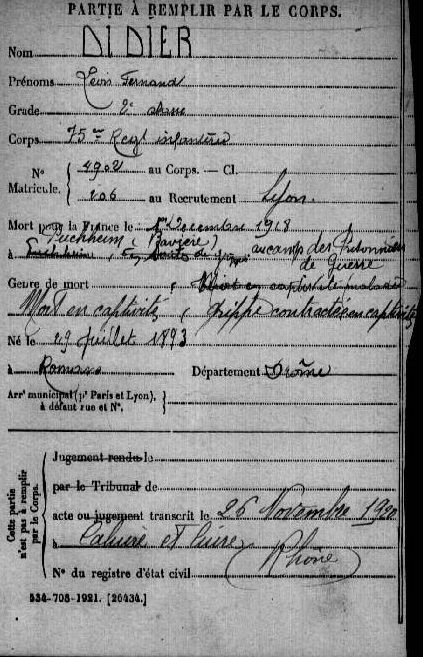 PARTIE À REMPLIR PAR LE CORPS.
Nom DIDIER
Prénoms Léon Fernand
Grade 2e classe
Corps 75me Regt infanterie
No Matricule. { 4902 au Corps. — Cl.
206 au Recrutement Lyon
Mort pour la France le 1er Décembre 1918
Puchheim (Bavière)
à au camp des Prisonniers
de Guerre
Genre de mort
Mort en captivité, grippe contractée en captivité
Né le 29 Juillet 1893
à Romans Département Drôme
Arrt municipal (pr Paris et Lyon),
à défaut rue et No.
Cette partie n'est pas à remplir par le Corps.
Jugement rendu le
par le Tribunal de
acte ou jugement transcrit le 26 Novembre 1920
à Caluire et Cuire
Rhône
No du registre d'état civil
534-708-1921. [26434.]